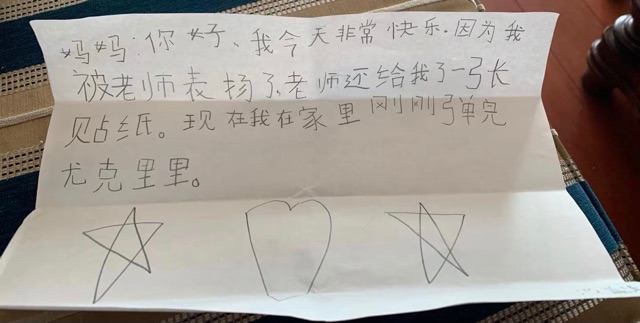 妈妈:你好、我今天非常快乐.因为我
被老师表扬了.老师还给我了一张
贴纸。现在我在家里刚刚弹完
尤克里里。